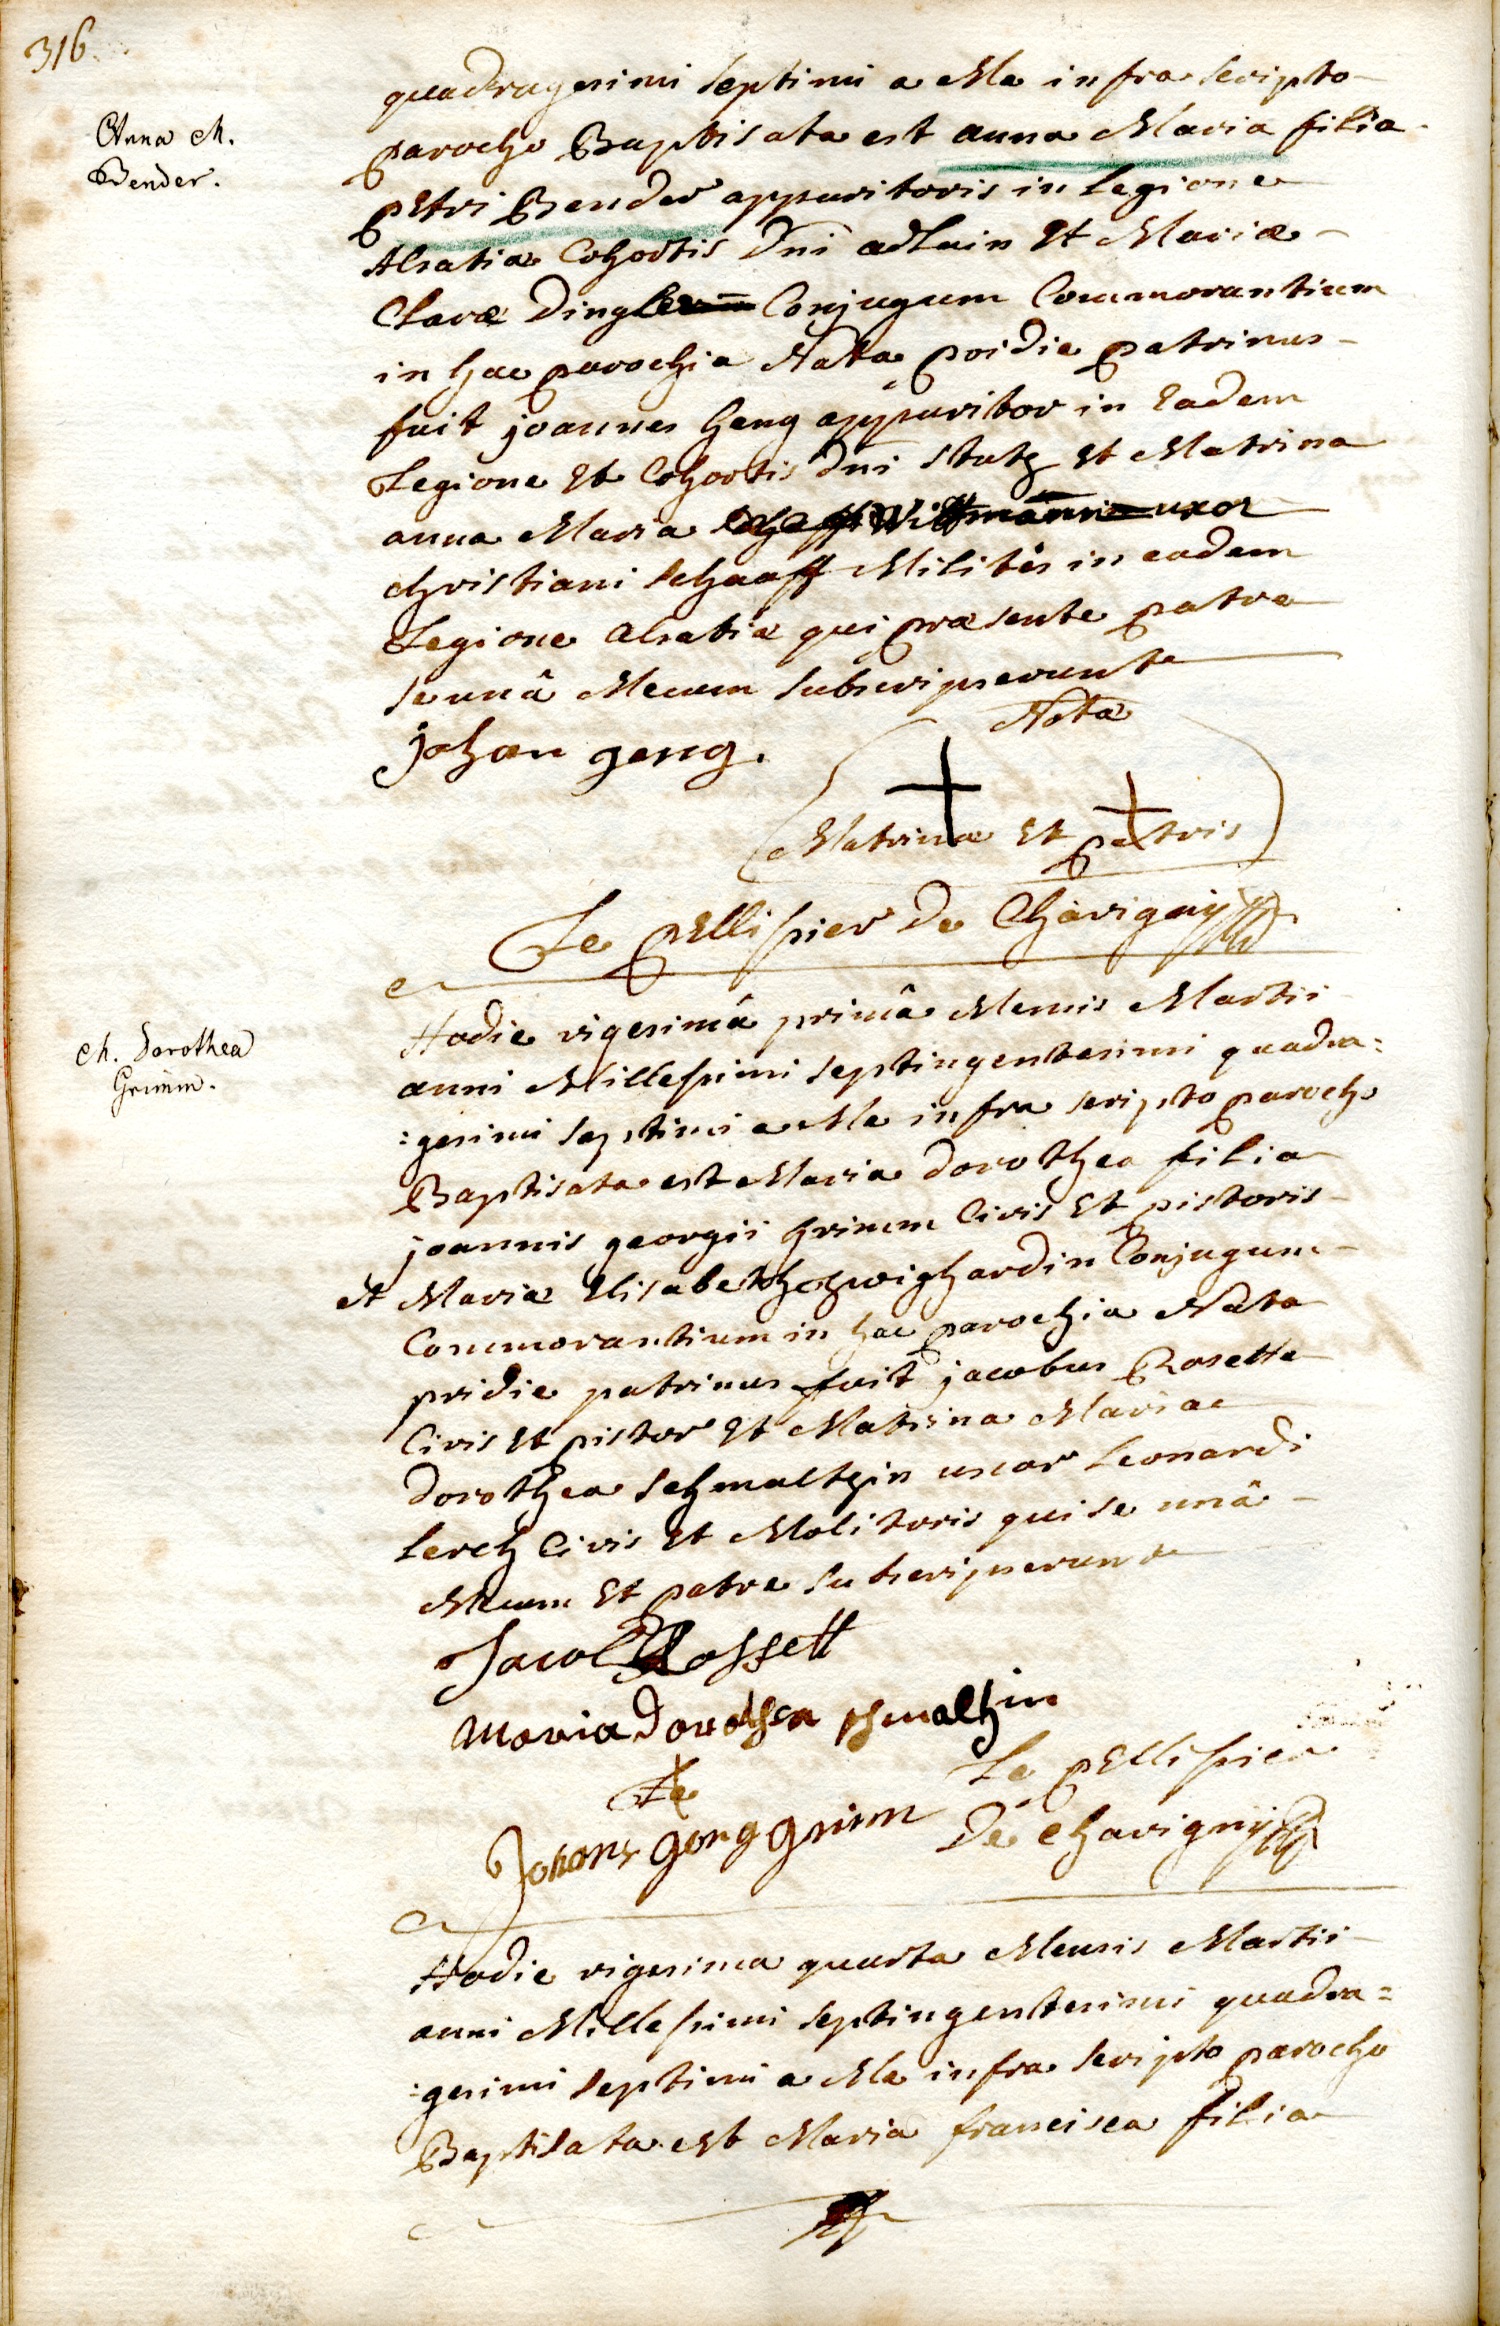 316.
Anna M.
Bender.
quadragesimi septimi a Me infra scripto
parocho Baptisata est anna Maria filia
petri Bender apparitoris in Legione
Alsatiæ Cohortis Dni
et Mariæ
Claræ Dingler Conjugum Commorantium
in hac parochia Nata pridie patrinus
fuit joannes Geng apparitor in Eadem
Legione et Cohortis Dni Statz et Matrina
anna Maria
uxor
christiani schaaff Militis in eadem
Legione alsatiæ qui præsente patre
se unâ Mecum subscripserunt
Nota
johan geng.
Matrinæ et patris
Le pellissier de Chavigny
M. Dorothea
Grimm.
Hodie vigesimâ primâ Mensis Martii
anni Millesimi septingentesimi quadra=
:gesimi septimi a Me infra scripto parocho
Baptisata est Maria dorothea filia
joannis georgii grimm Civis et pistoris
et Mariæ Elisabeth
Conjugum
Commorantium in hac parochia Nata
pridie patrinus fuit jacobus Rosette
Civis et pistor et Matrina Maria
dorothea schmaltzin uxor Leonardi
Lerch Civis et Molitoris qui se unâ
Mecum et patre subscripserunt
Jacob Rossett
Maria Dorothea schmaltzin
Le pellissier
De chavigny
Johans gorg grim
Hodie vigesima quarta Mensis Martii
anni Millesimi septingentesimi quadra=
:gesimi septimi a Me infra scripto parocho
Baptisata est Maria francisca filia